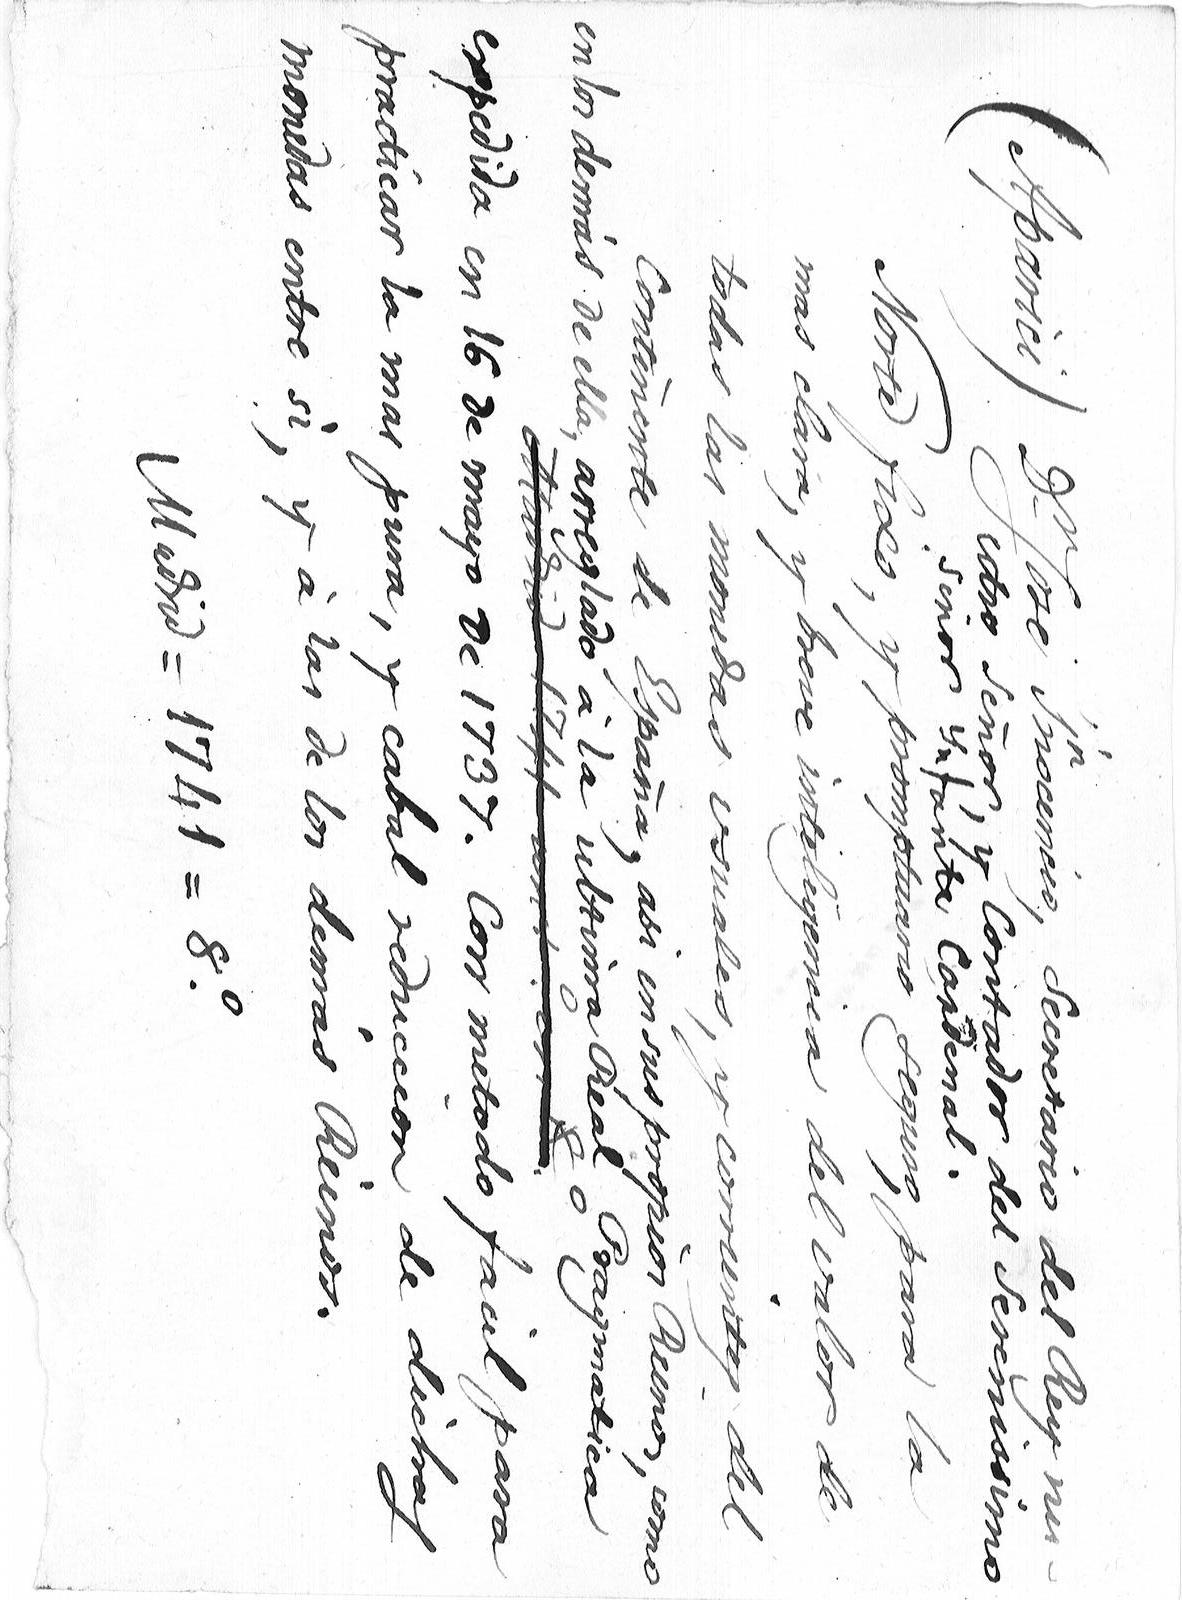 (Aparici) D.ⁿ Jose ÿnocencio, Secretario del Rey nu-
estro señor, y Contador del Serenissimo
señor ynfante Cardenal.
Norte fixo, y promptuario seguro, para la
mas clara, y breve inteligencia del valor de
todas las monedas usuales, y corrientes del
Continente de España, asi en sus propios Reinos, como
en los demás de ella, arreglado à la ultima Real Pragmatica
expedida en 16 de mayo de 1737. Con metodo facil para
practicar la mas pura, y cabal reduccion de dichas
monedas entre sì, y à las de los demás Reinos.
Madrid = 1741 = 8.º